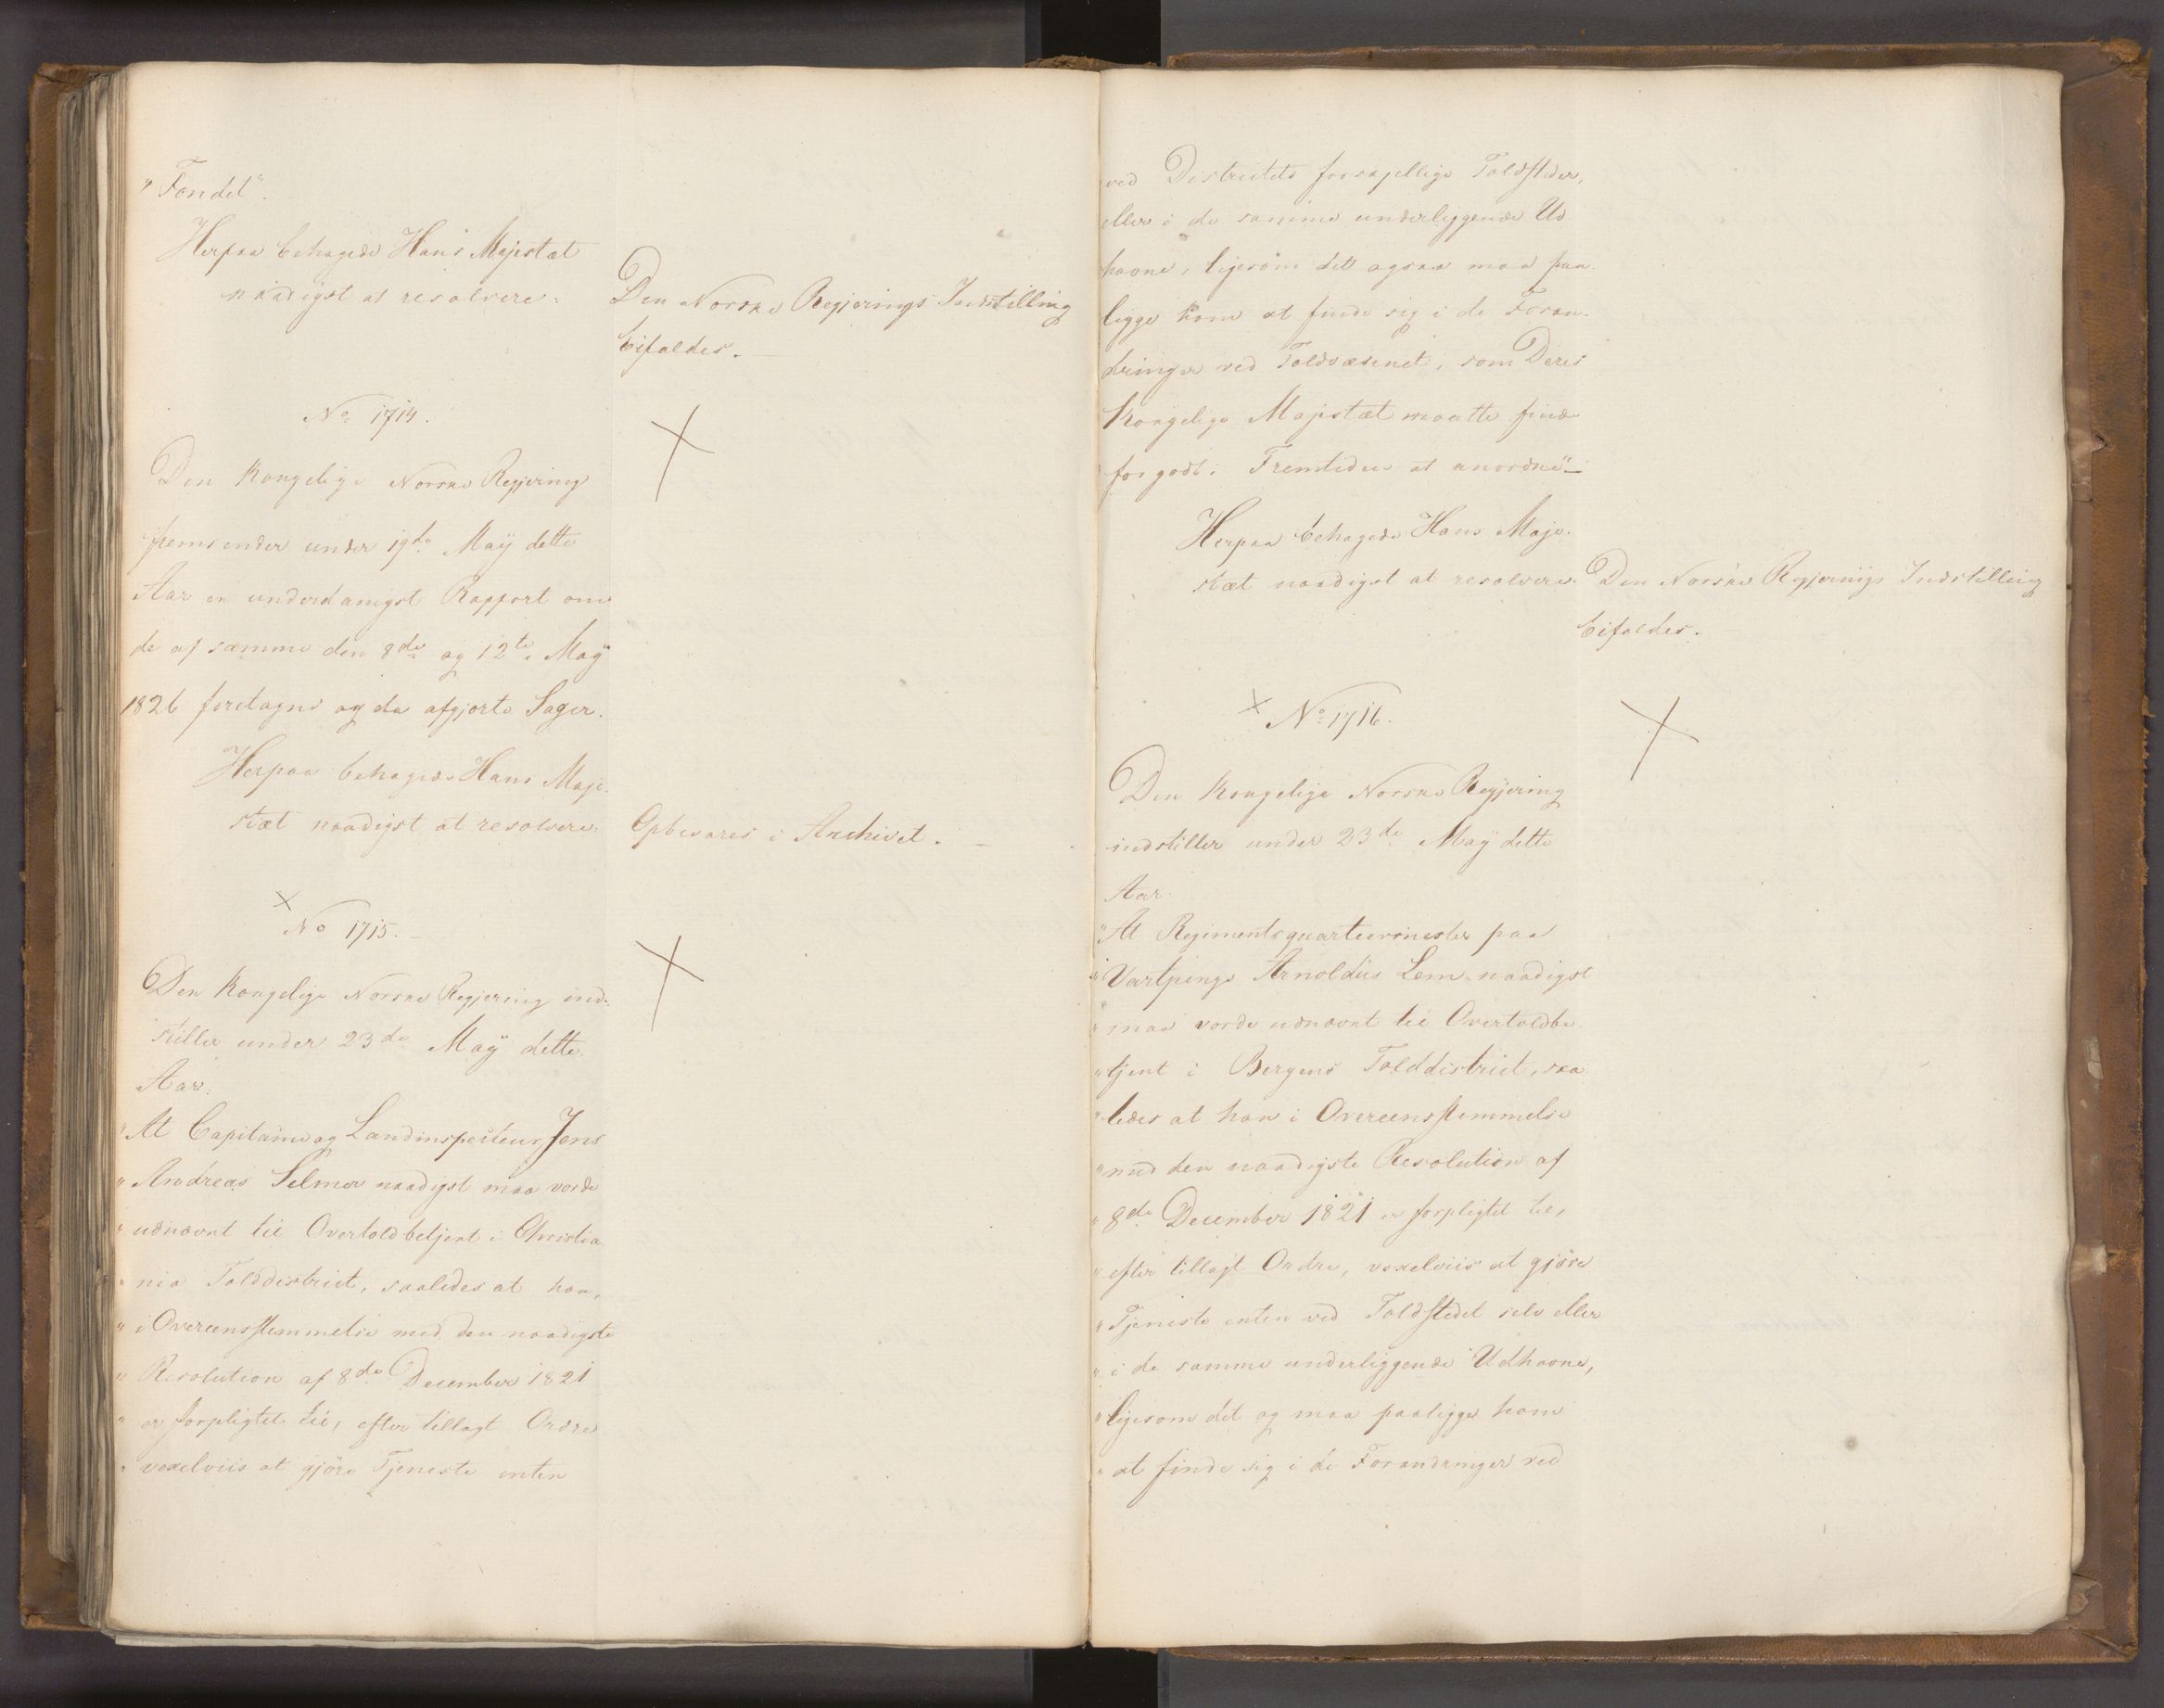 "Fondet".
Herpaa behagede Hans Majestæt
naadigst at resolvere:
Den Norske Regjerings Indstilling
bifaldes.
No 1714.
Den Kongelige Norske Regjering
fremsender under 19de May dette
Aar en underdanigst Rapport om
de af samme den 8de og 12te May
1826 foretagne og da afgjorte Sager.
Herpaa behagede Hans Maje-
stæt naadigst at resolvere:
Opbevares i Archivet.
No 1715.
Den Kongelige Norske Regjering ind-
stiller under 23de May dette
Aar:
"At Capitaine og Landinspecteur Jens
"Andreas Selmer naadigst maa vorde
"udnævnt til Overtoldbetjent i Christia
"nia Tolddistrict, saaledes at han,
"i Overeensstemmelse med den naadigste
"Resolution af 8de December 1821
"er forpligtet til, efter tillagt Ordre
"vexelviis at gjöre Tjeneste enten
ved Districtets forskjellige Toldsteder,
eller i de samme underliggende Ud
havne, ligesom det ogsaa maa paa-
ligge ham at finde sig i de Foran-
dringer ved Toldvæsenet, som Deres
Kongelige Majestæt maatte finde
for godt i Fremtiden at anordne"
Herpaa behagede Hans Maje-
stæt naadigst at resolvere:
Den Norske Regjerings Indstilling
bifaldes.
No 1716.
Den Kongelige Norske Regjering
indstiller under 23de May dette
Aar:
"At Regimentsquarteermester paa
"Vartpenge Arnoldus Lem naadigst
"maa vorde udnævnt til Overtoldbe
"tjent i Bergens Tolddistrict, saa
"ledes at han i Overeensstemmelse
"med den naadigste Resolution af
"8de December 1821 er forpligtet til,
"efter tillagt Ordre, vexelviis at gjöre
"Tjeneste enten ved Toldstedet selv eller
"i de samme underliggende Udhavne,
"ligesom det og maa paaligge ham
"at finde sig i de Forandringer ved